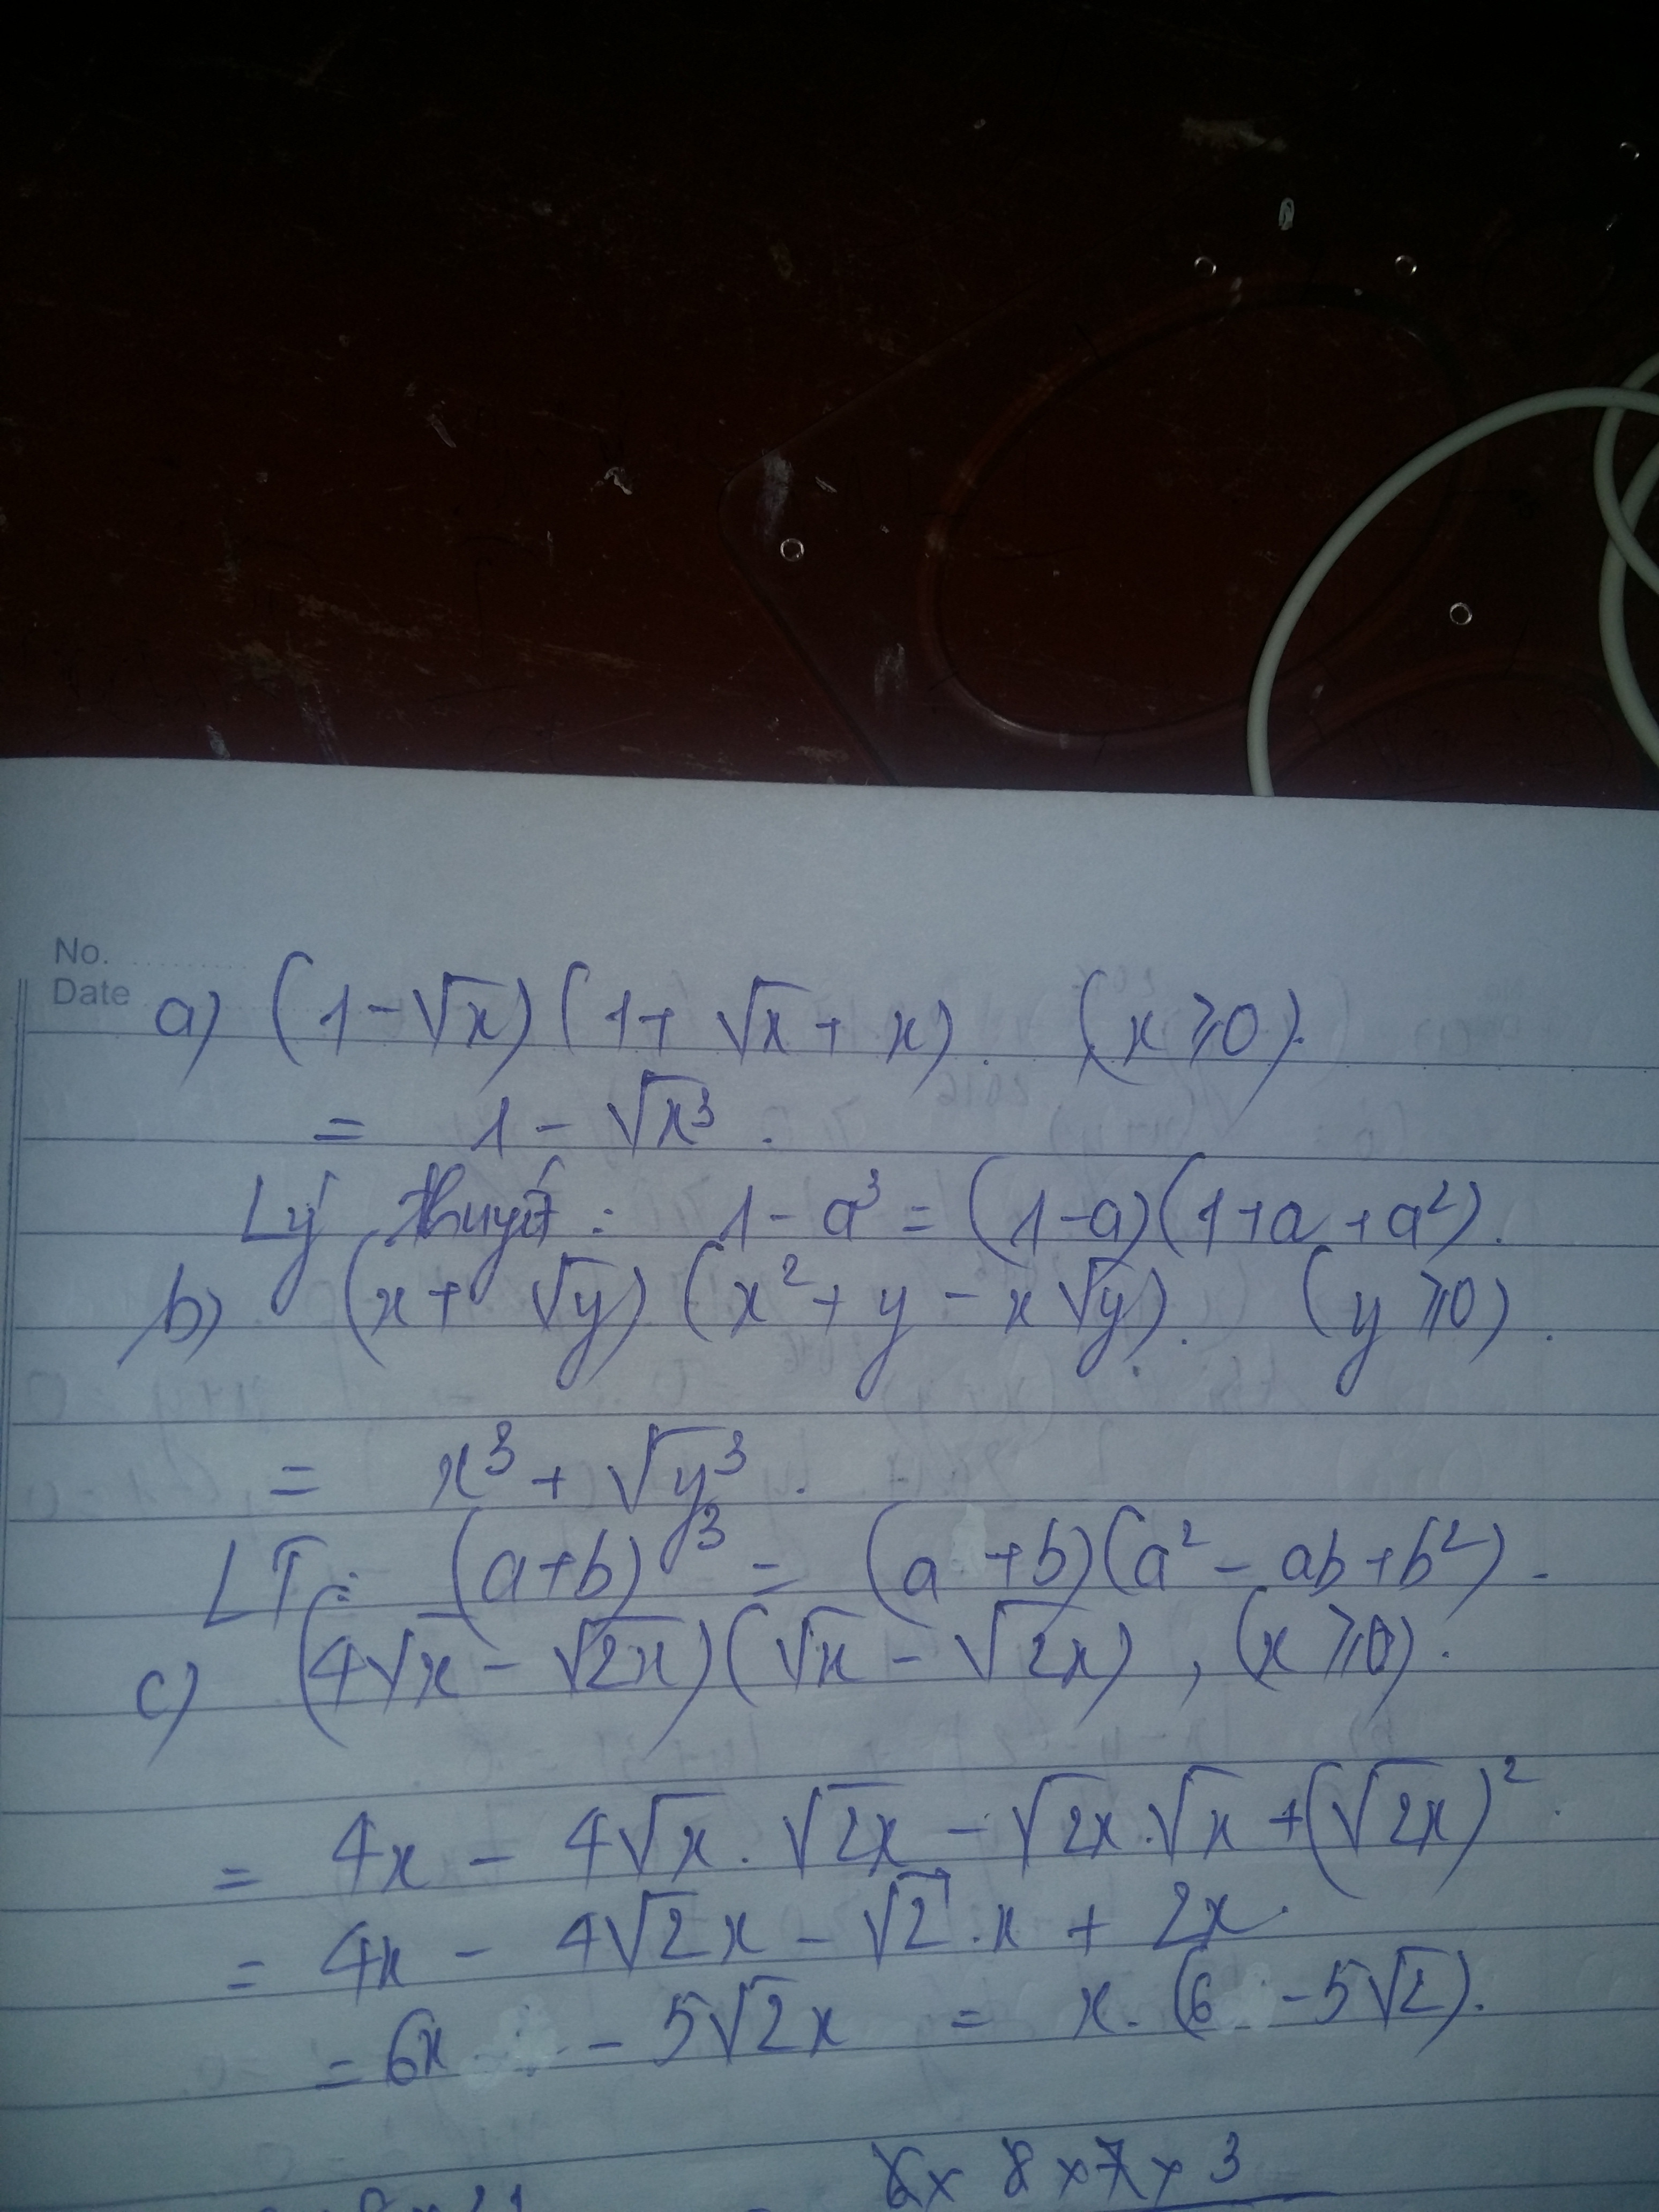 No.
Date
a) (1-√x)(1+ √x + x). (x ⩾ 0).
= 1 - √x³.
Lý thuyết: 1 - a³ = (1-a)(1+a+a²).
b) (x + √y)(x² + y - x√y). (y ⩾ 0).
= x³ + √y³.
LT: (a+b)³ = (a+b)(a² - ab + b²).
c) (4√x - √2x)(√x - √2x), (x ⩾ 0).
= 4x - 4√x.√2x - √2x.√x + (√2x)².
= 4x - 4√2x - √2.x + 2x.
= 6x - 5√2x = x.(6 - 5√2).
6 x 8 x 7 x 3